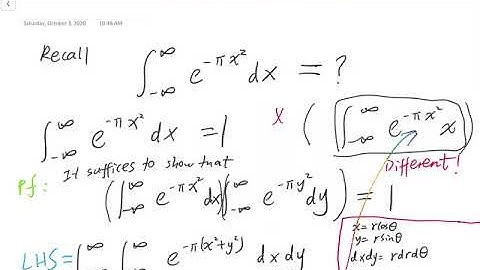 Saturday, October 3, 2020 10:46 AM
Recall ∫_{-∞}^{∞} e^{-πx²} dx = ?
∫_{-∞}^{∞} e^{-πx²} dx = 1 X ( ∫_{-∞}^{∞} e^{-πx²} x )
Different!
Pf: It suffices to show that
( ∫_{-∞}^{∞} e^{-πx²} dx )( ∫_{-∞}^{∞} e^{-πy²} dy ) = 1
x = rcosθ
y = rsinθ
dxdy = rdrdθ
LHS = ∫_{-∞}^{∞} ∫_{-∞}^{∞} e^{-π(x²+y²)} dx dy